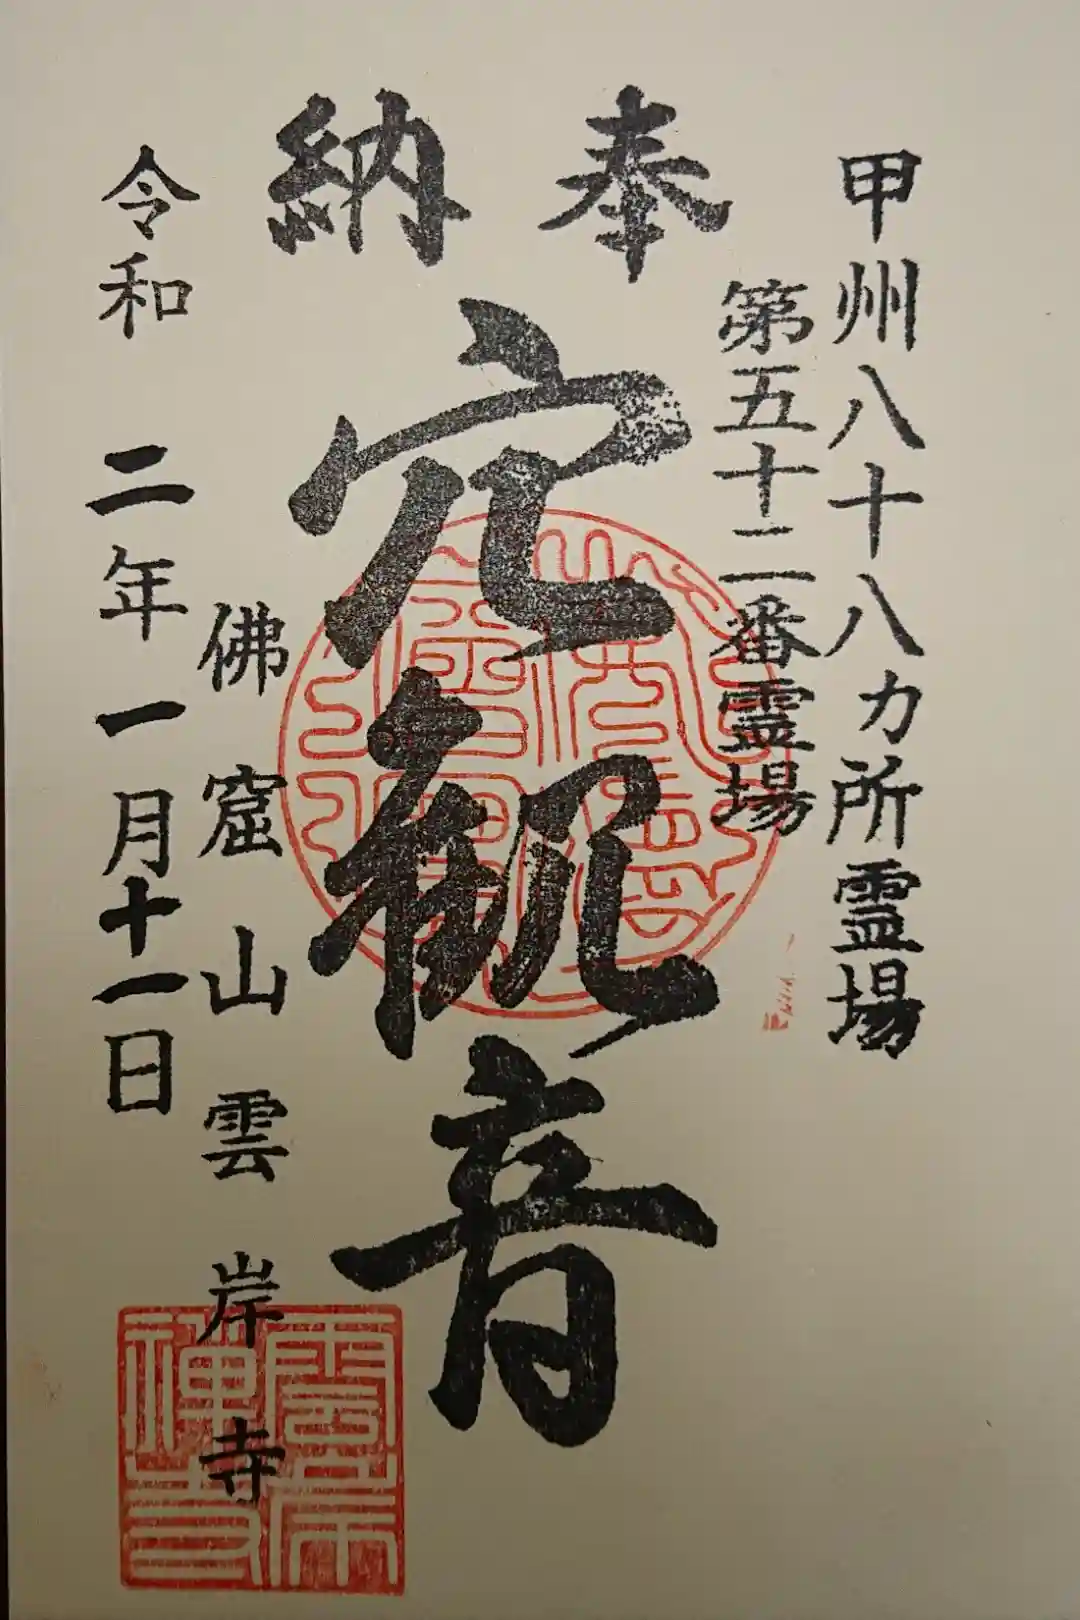 甲州八十八カ所霊場
第五十二番霊場
奉納
穴観音
佛窟山雲岸寺
令和二年一月十一日
雲岸禅寺